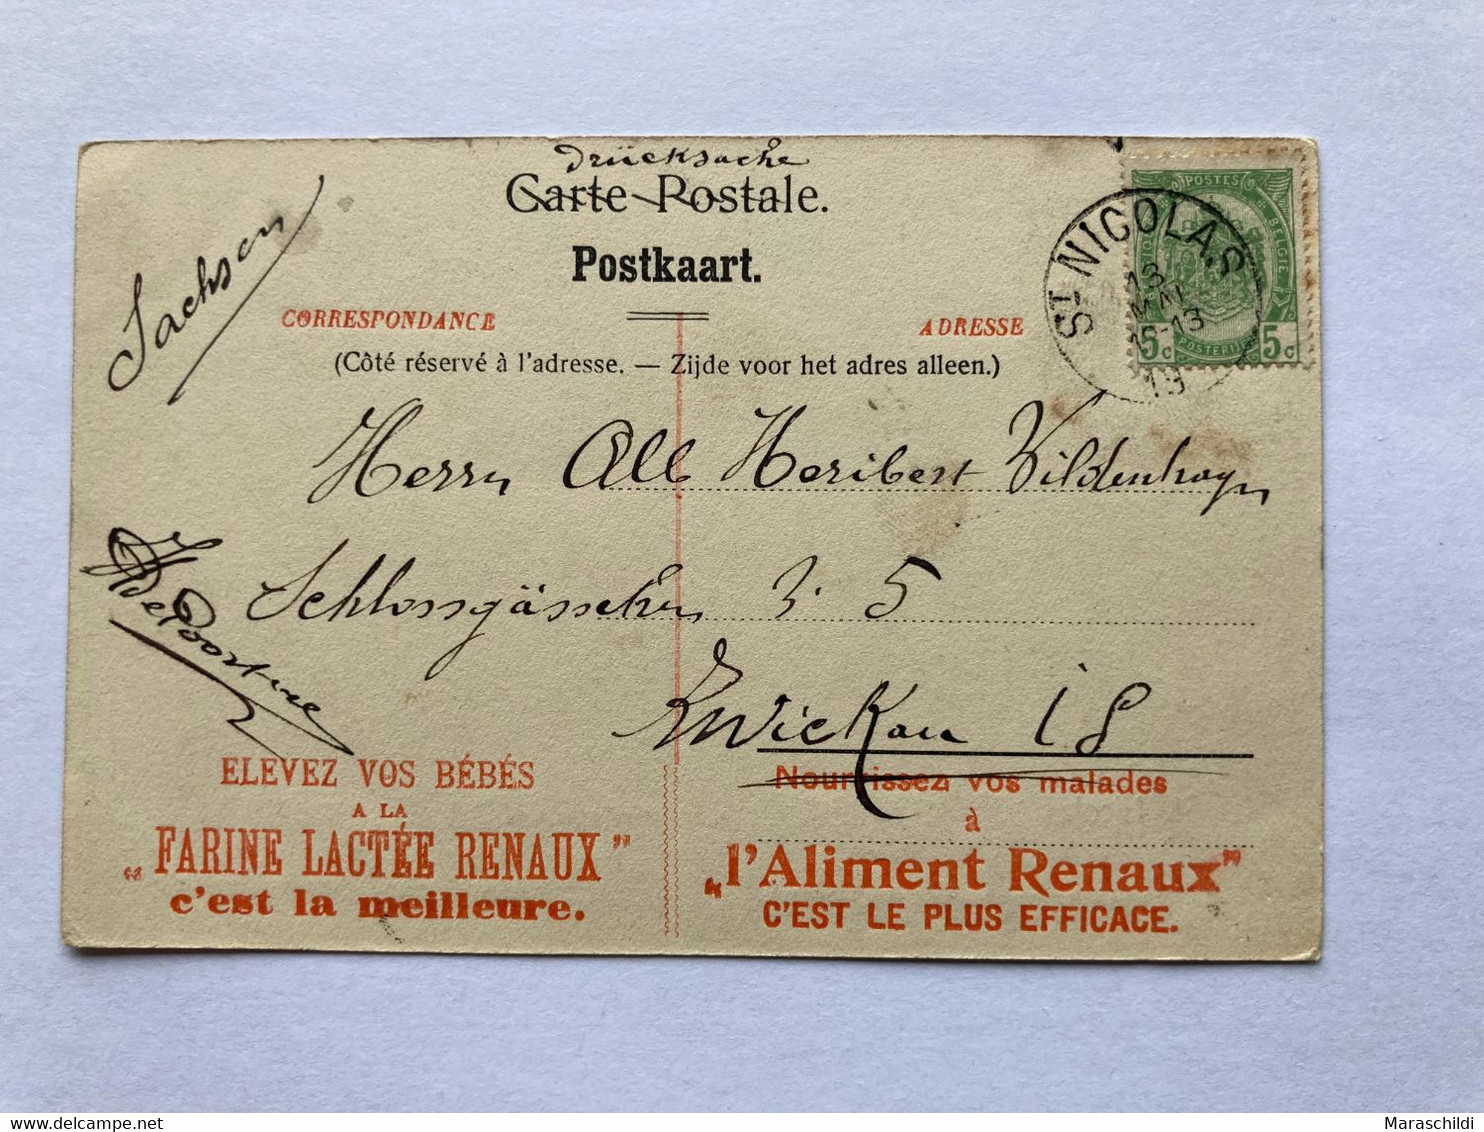 Drücksache
Carte Postale.
Postkaart.
Sachsen
CORRESPONDANCE
ADRESSE
(Côté réservé à l'adresse. — Zijde voor het adres alleen.)
ST NICOLAS
13
MAI
15-13
13
POSTES
BELGIQUE
BELGIE
POSTERIJEN
5c 5c
Herrn All Heribert Vildenhayn
Schlossgässchen 3. 5
Zwickau i S
De Poortere
ELEVEZ VOS BÉBÉS
A LA
„FARINE LACTÉE RENAUX”
c'est la meilleure.
Nourrissez vos malades
à
„l'Aliment Renaux”
C'EST LE PLUS EFFICACE.
Maraschildi